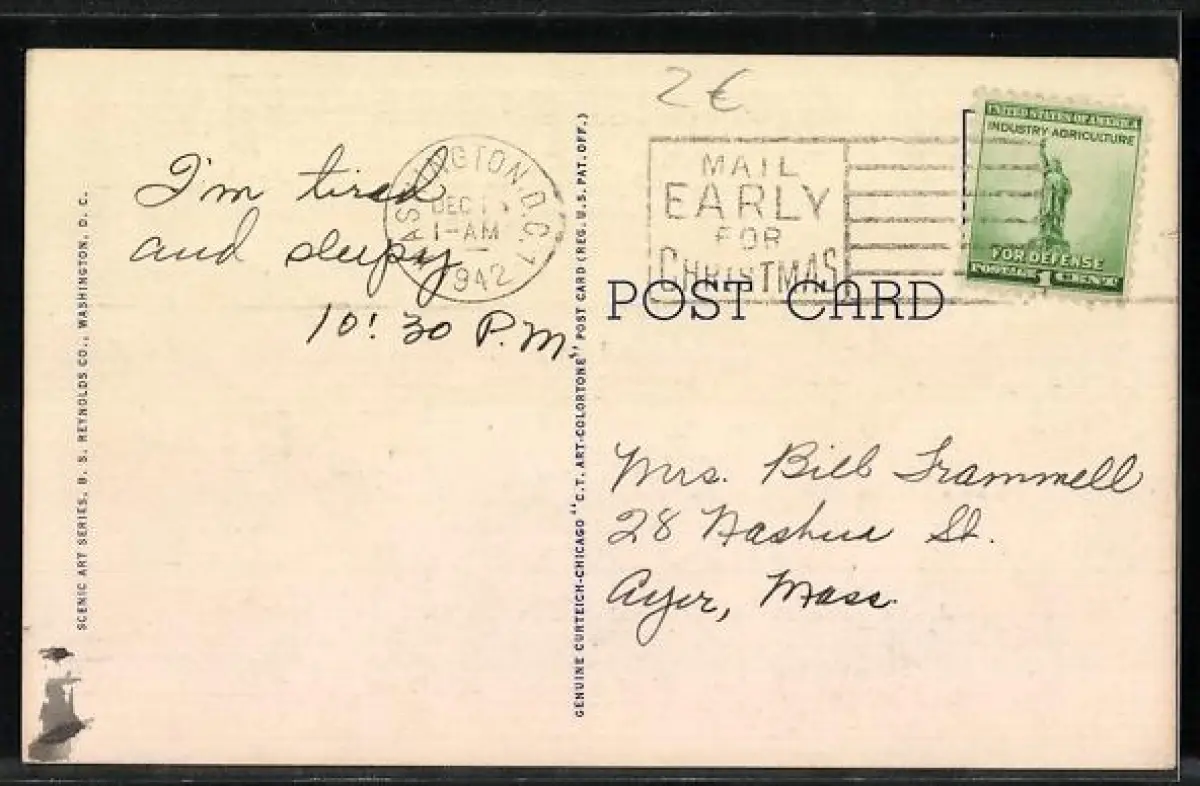 2 €
I'm tired
and sleepy
10:30 P.M.
WASHINGTON, D.C. 1
DEC 1
1-AM
1942
MAIL
EARLY
FOR
CHRISTMAS
UNITED STATES OF AMERICA
INDUSTRY AGRICULTURE
FOR DEFENSE
POSTAGE 1 CENT
POST CARD
Mrs. Bill Trammell
28 Nashua St.
Ayer, Mass.
SCENIC ART SERIES, B. S. REYNOLDS CO., WASHINGTON, D. C.
GENUINE CURTEICH-CHICAGO "C.T. ART-COLORTONE" POST CARD (REG. U.S. PAT. OFF.)